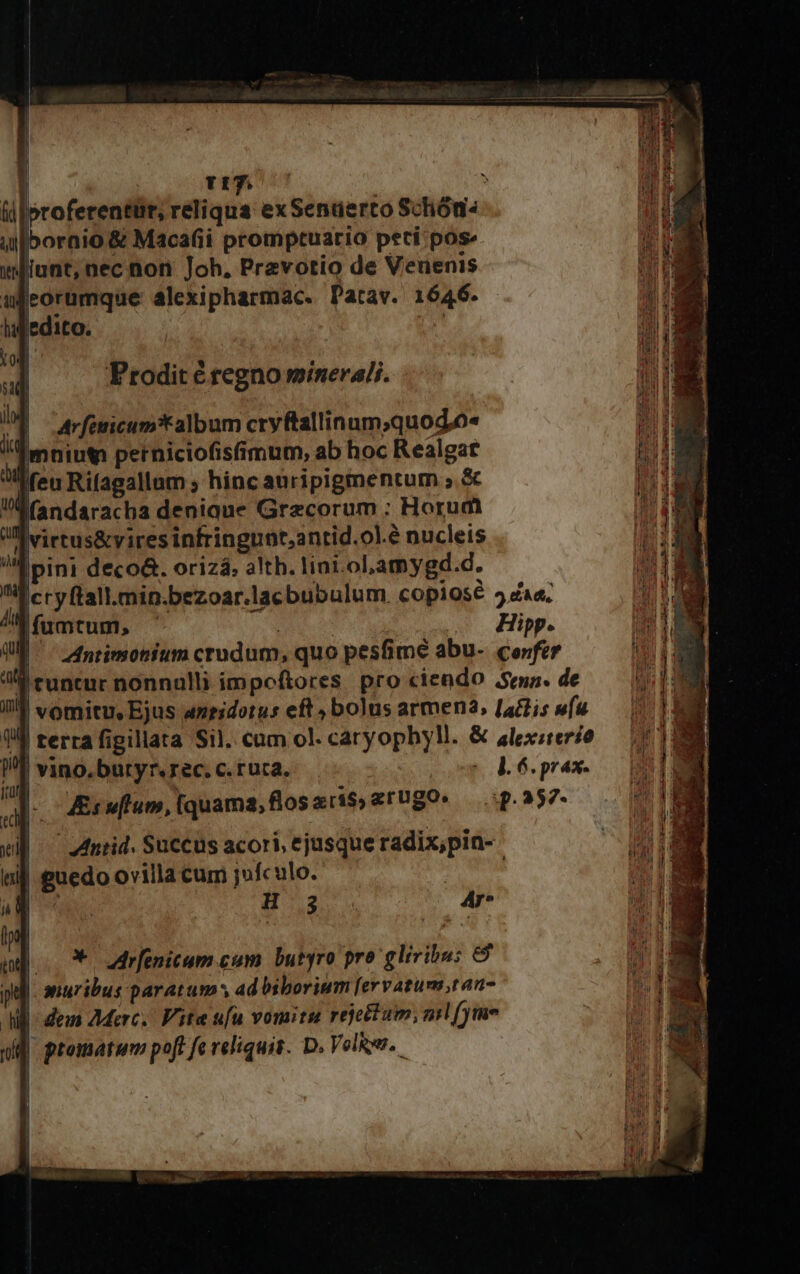 117.
proferentur, reliqua ex Sennerto Schön-
bornio & Macasii promptuario peti pos-
sunt, nec non Joh. Prævotio de Venenis
eorumque alexipharmac. Patav. 1646.
edito.
Prodit é regno minerali.
Arsenicum* album crystallinum, quod o-
mnium perniciosissimum, ab hoc Realgat
seu Risagallum; hinc auripigmentum, &
sandaracha denique Græcorum: Horum
virtus & vires infringunt, antid. ol. è nucleis
pini deco&. orizâ, alth. lini. ol. amygd. d.
crystall. min. bezoar. lac bubulum copiosè
sumtum, Hipp.
Antimonium crudum, quo pessimé abu- confer
tuntur nonnulli impostores pro ciendo Senn. de
vomitu. Ejus antidotus est, bolus armena, lactis usu
terra sigillata Sil. cum ol. caryophyll. & alexiterio
vino. butyr. rec. c. ruta. l. 6. prax.
Æs ustum, squama, flos æris, ærugo. p. 257.
Antid. Succus acori, ejusque radix, pin-
guedo ovilla cum jusculo.
H 3 Ar-
* Arsenicum cum butyro pro gliribus &
muribus paratum, ad biborium servatum, tan-
dem Merc. Vitæ usu vomitu rejectum, nil sym-
ptomatum post se reliquit. D. Volkam.